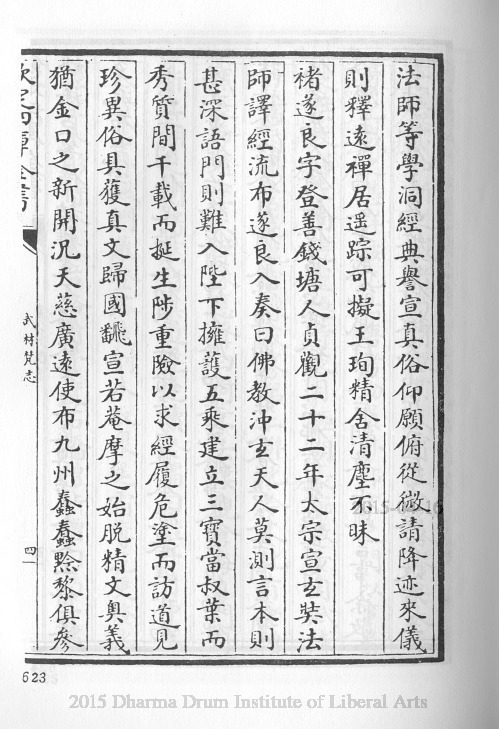 法師等學洞經典譽宣真俗仰願俯從微請降迹來儀
則釋遠禪居遥踪可擬王珣精舍清塵不昧
褚遂良字登善錢塘人貞觀二十二年太宗宣玄奘法
師譯經流布遂良入奏曰佛教沖玄天人莫測言本則
甚深語門則難入陛下擁護五乘建立三寶當叔葉而
秀質間千載而挺生陟重險以求經履危塗而訪道見
珍異俗具獲真文歸國飜宣若菴摩之始脱精文奥義
猶金口之新開况天慈廣遠使布九州蠢蠢黔黎俱參
欽定四庫全書
武林梵志
四
623
2015 Dharma Drum Institute of Liberal Arts